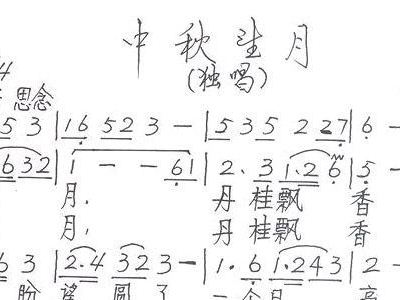 中秋望月
(独唱)
4
思念
5 3 | 1 6 5 2 3 － | 5 3 5 2 2 7 | 6 －
6 3 2 | 1 － － 6 1 | 2. 3 1. 2 6 | 5 －
月, 丹桂飘香
月; 丹桂飘香
6 3 | 2. 4 3 2 3 － | 1. 6 1. 2 4 3 | 2 －
盼望圆了一个月亮